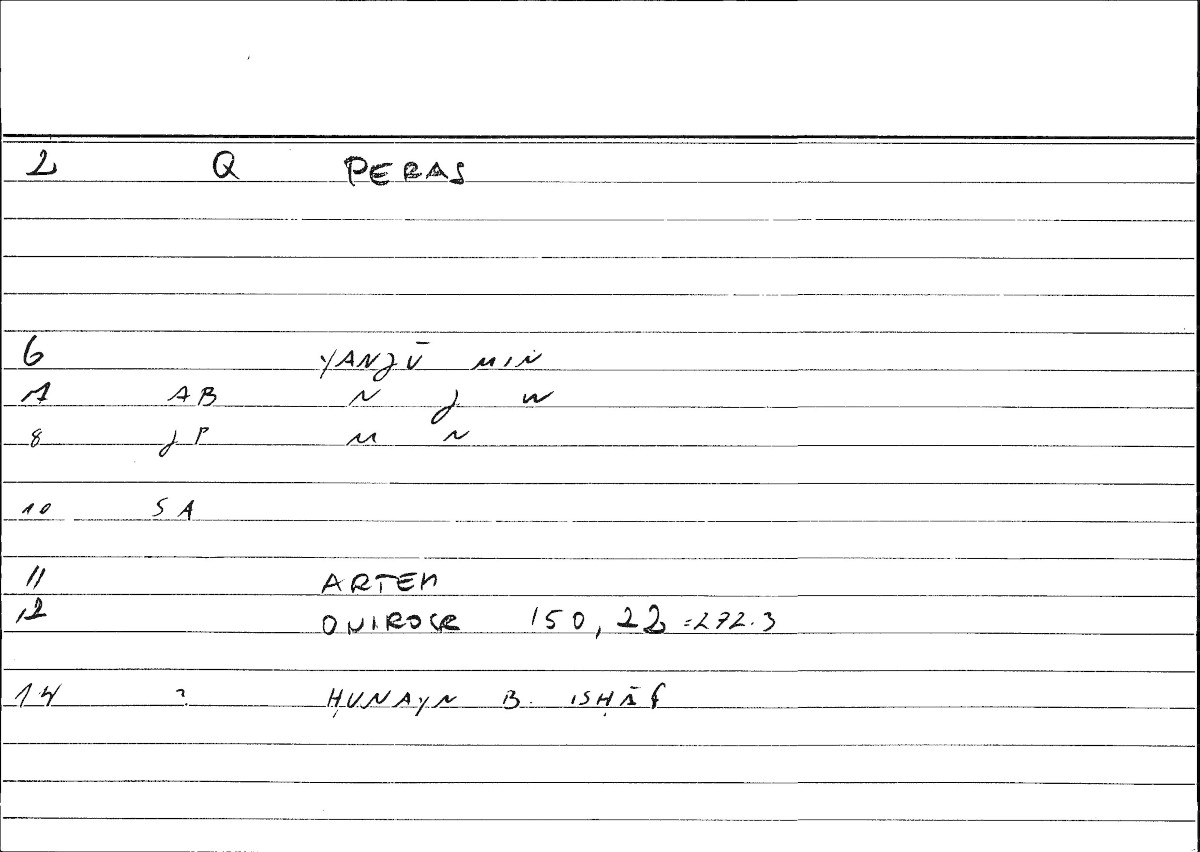 2 Q PERAS
6 YANJŪ MIN
7 AB N J W
8 JP M N
10 SA
11 ARTEM
12 ONIROCR 150, 22 =272.3
14 ? ḤUNAYN B. ISḤĀQ